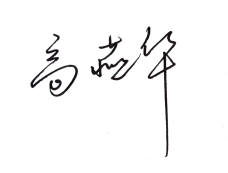 高燕华